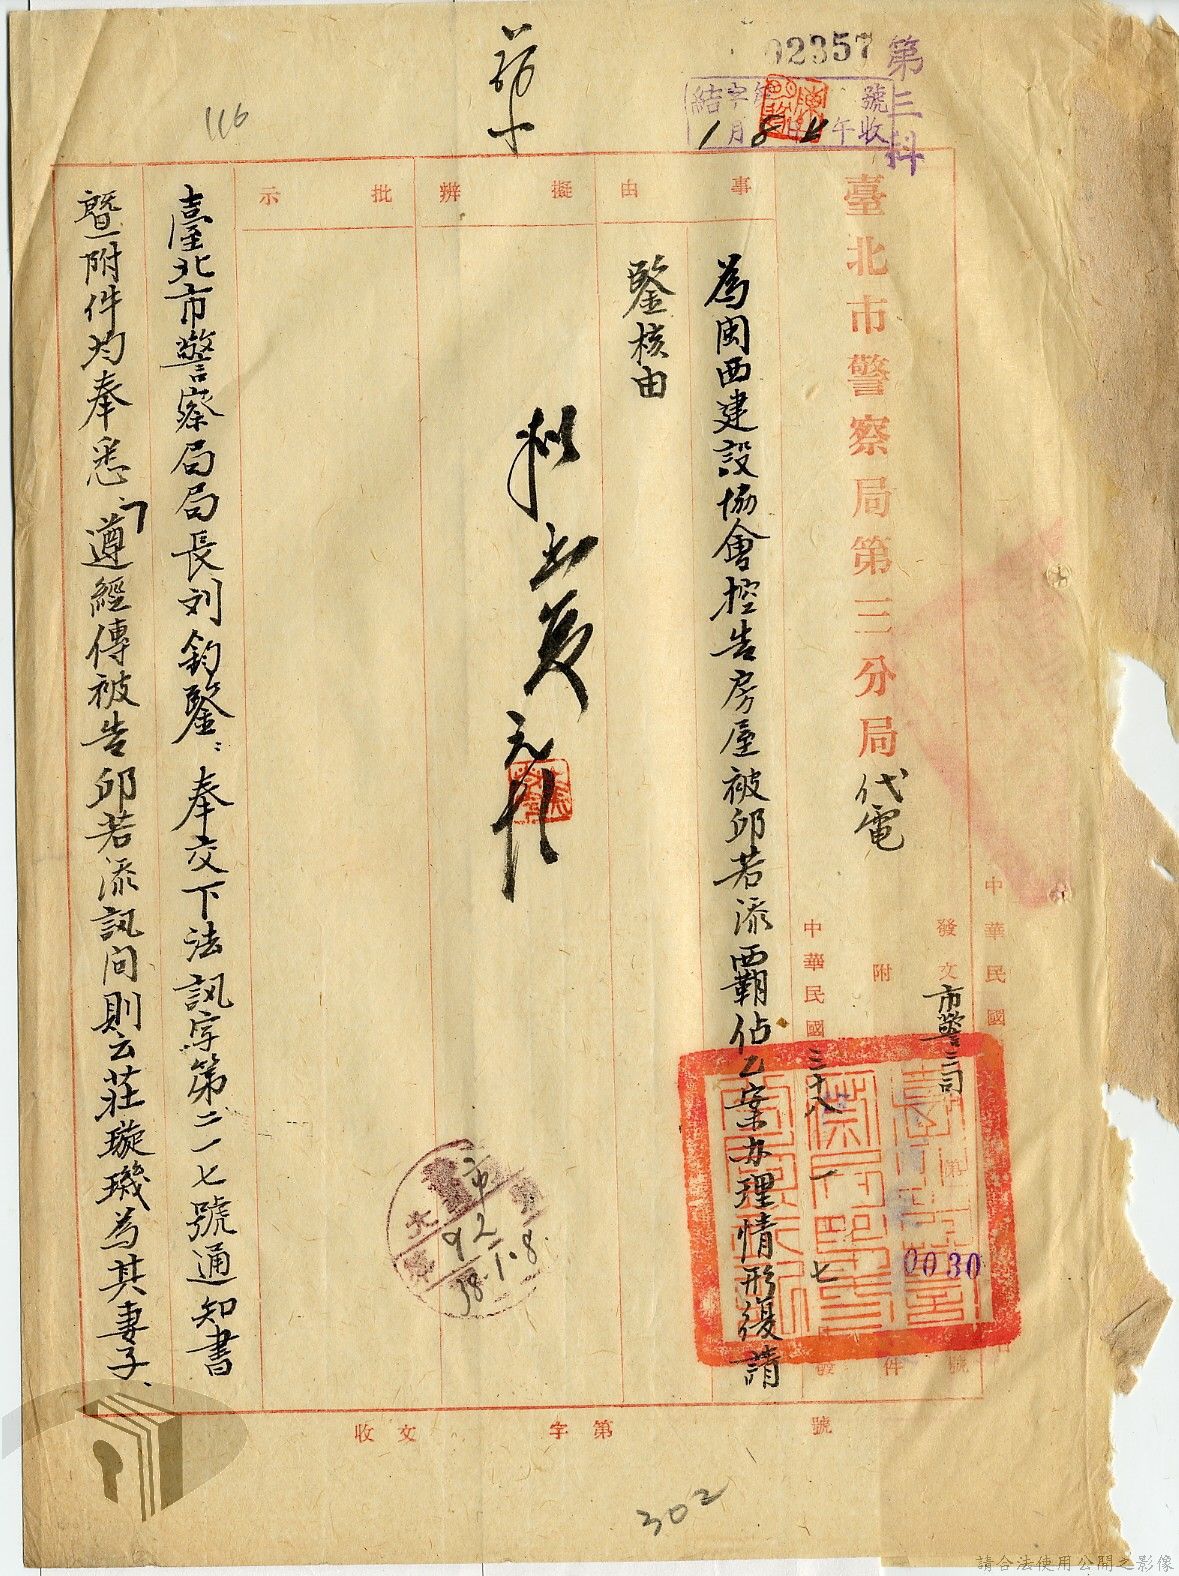 02357
第三科
結字第 號
月 日 午收
1 8
116
臺北市警察局第三分局代電
中華民國
發文市警三司 第 0030 號
附 件
中華民國三十八 一 七 發
事由
為閩西建設協會控告房屋被邱若添霸佔乙案办理情形復請
鑒核由
擬辦
批示
臺北市警察局局長刘鈞鑒：奉交下法訊字第二一七號通知書
暨附件均奉悉、遵經傳被告邱若添訊问則云莊璇璣為其妻子、
92
38.1.8.
收文 字第 號
302
請合法使用公開之影像